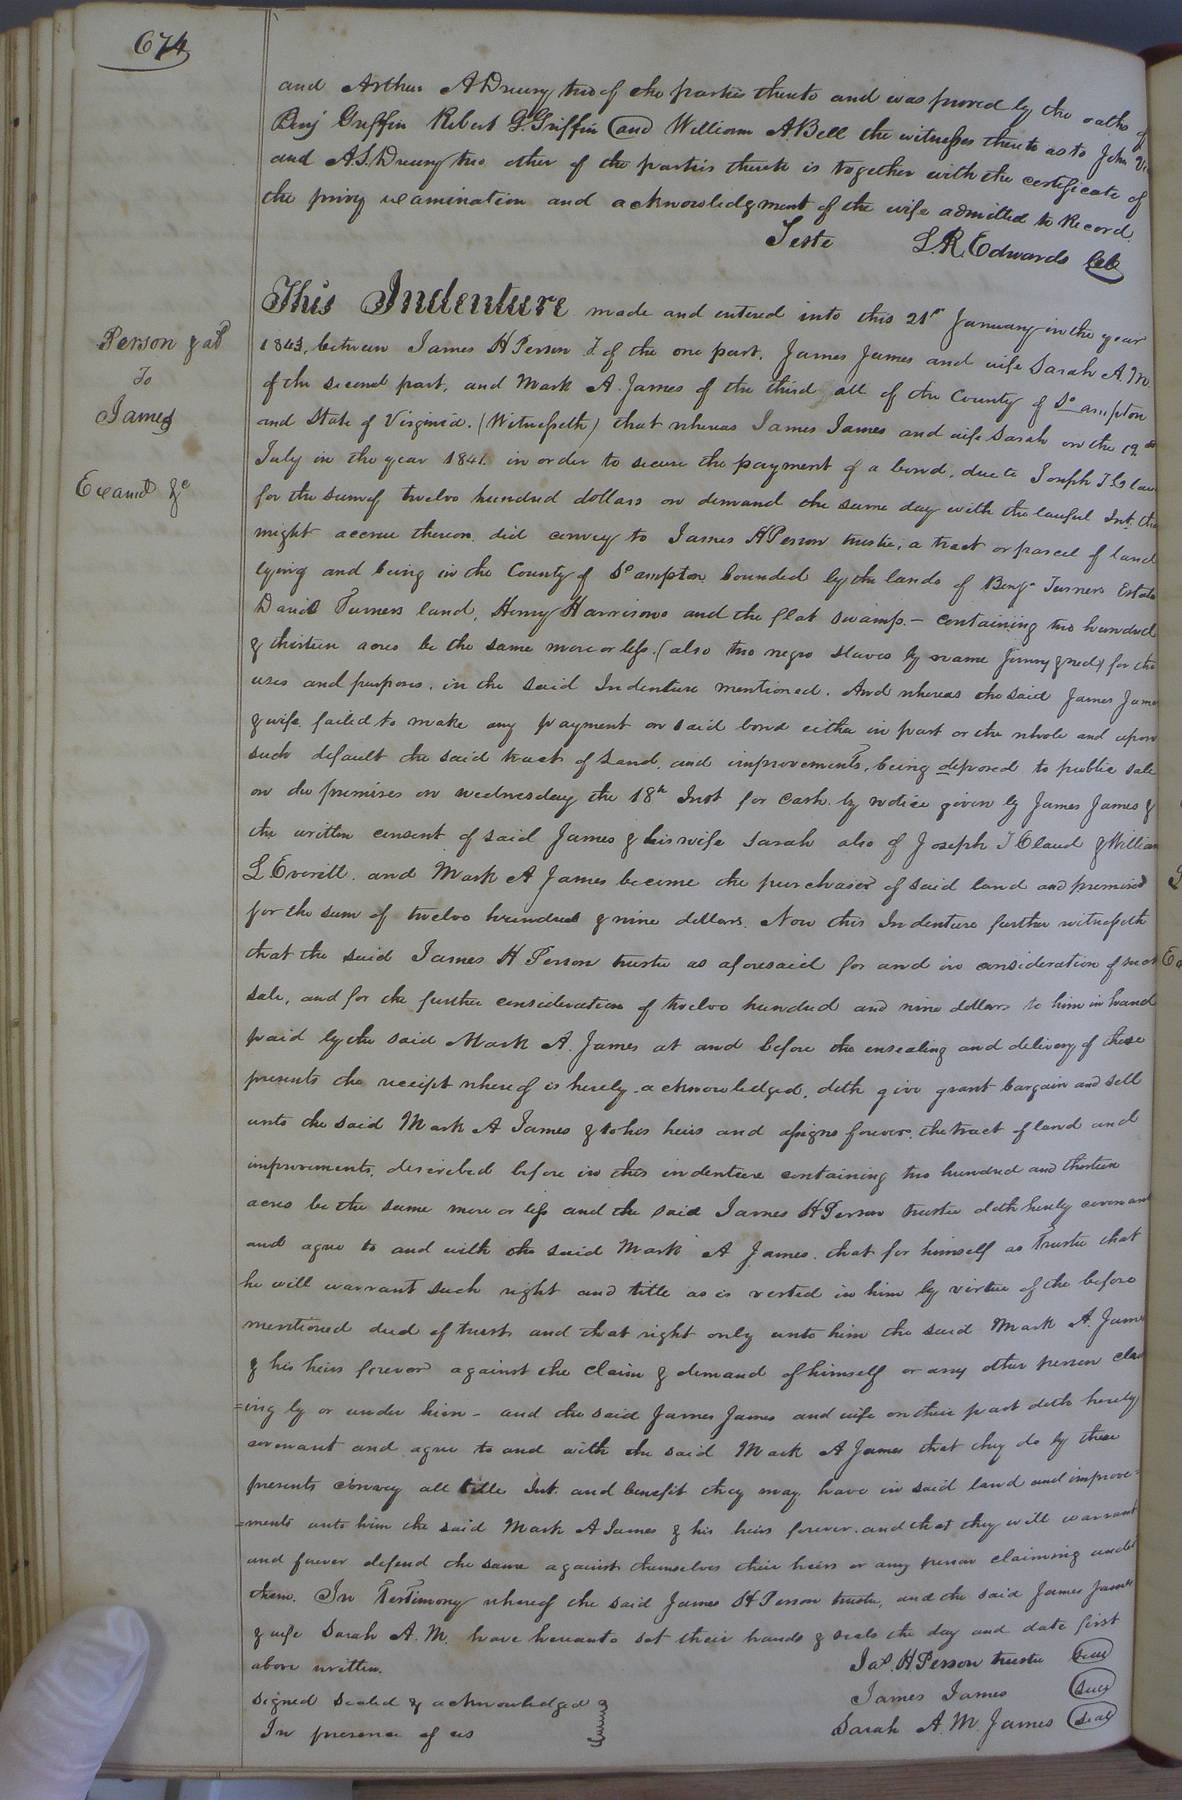 674
and Arthur A Drewry two of the parties thereto and was proved by the oaths of
Benj Griffin Robert G. Griffin and William A. Bell the witnesses thereto as to John
and A.S. Drewry two other of the parties thereto is together with the certificate of
the privy examination and acknowledgment of the wife admitted to Record.
Teste L. R. Edwards Clk
Person & als
To
James
Examd &c
This Indenture made and entered into this 21st January in the year
1843, between James H Person T. of the one part, James James and wife Sarah A. M.
of the second part, and Mark A. James of the third all of the County of So ampton
and State of Virginia. (Witnesseth) that whereas James James and wife Sarah on the 19th
July in the year 1841. in order to secure the payment of a bond, due to Joseph T Claud
for the sum of twelve hundred dollars on demand the same day with the lawful Int. tha
might accrue thereon did convey to James H Person trustee, a tract or parcel of land
lying and being in the County of So ampton bounded by the lands of Benj. Turners Estate
David Turners land, Henry Harrisons and the flat swamp. - containing two hundred
& thirteen acres be the same more or less. (also two negro slaves by name Jinny & ned) for the
uses and purposes, in the said Indenture mentioned. And whereas the said James Jame
& wife failed to make any payment on said bond either in part or the whole and upon
such default the said tract of Land, and improvements, being deposed to public sale
on the premises on wednesday the 18th Inst for cash by notice given by James James &
the written consent of said James & his wife Sarah also of Joseph T Claud & William
L Everitt. and Mark A James become the purchaser of said land and premises
for the sum of twelve hundred & nine dollars. Now this Indenture further witnesseth
that the said James H Person trustee as aforesaid for and in consideration of such
sale, and for the further consideration of twelve hundred and nine dollars to him in hand
paid by the said Mark A. James at and before the ensealing and delivery of these
presents the receipt whereof is hereby acknowledged, doth give grant bargain and sell
unto the said Mark A James & to his heirs and assigns forever, the tract of land and
improvements, described before in this indenture containing two hundred and thirteen
acres be the same more or less and the said James H Person trustee doth hereby covenant
and agree to and with the said Mark A James. that for himself as Trustee that
he will warrant such right and title as is vested in him by virtue of the before
mentioned deed of trust and that right only unto him the said Mark A. Jame
& his heirs forever against the claim & demand of himself or any other person clai
=ing by or under him - and the said James James and wife on their part doth hereby
covenant and agree to and with the said Mark A James that they do by these
presents convey all title Int. and benefit they may have in said land and improve=
=ments unto him the said Mark A James & his heirs forever. and that they will warrant
and forever defend the same against themselves their heirs or any person claiming under
them. In Testimony whereof the said James H Person trustee, and the said James James
& wife Sarah A. M. have hereunto set their hands & seals the day and date first
above written. Jas. H Person trustee seal
signed sealed & acknowledged James James seal
In presence of us Sarah A. M. James seal